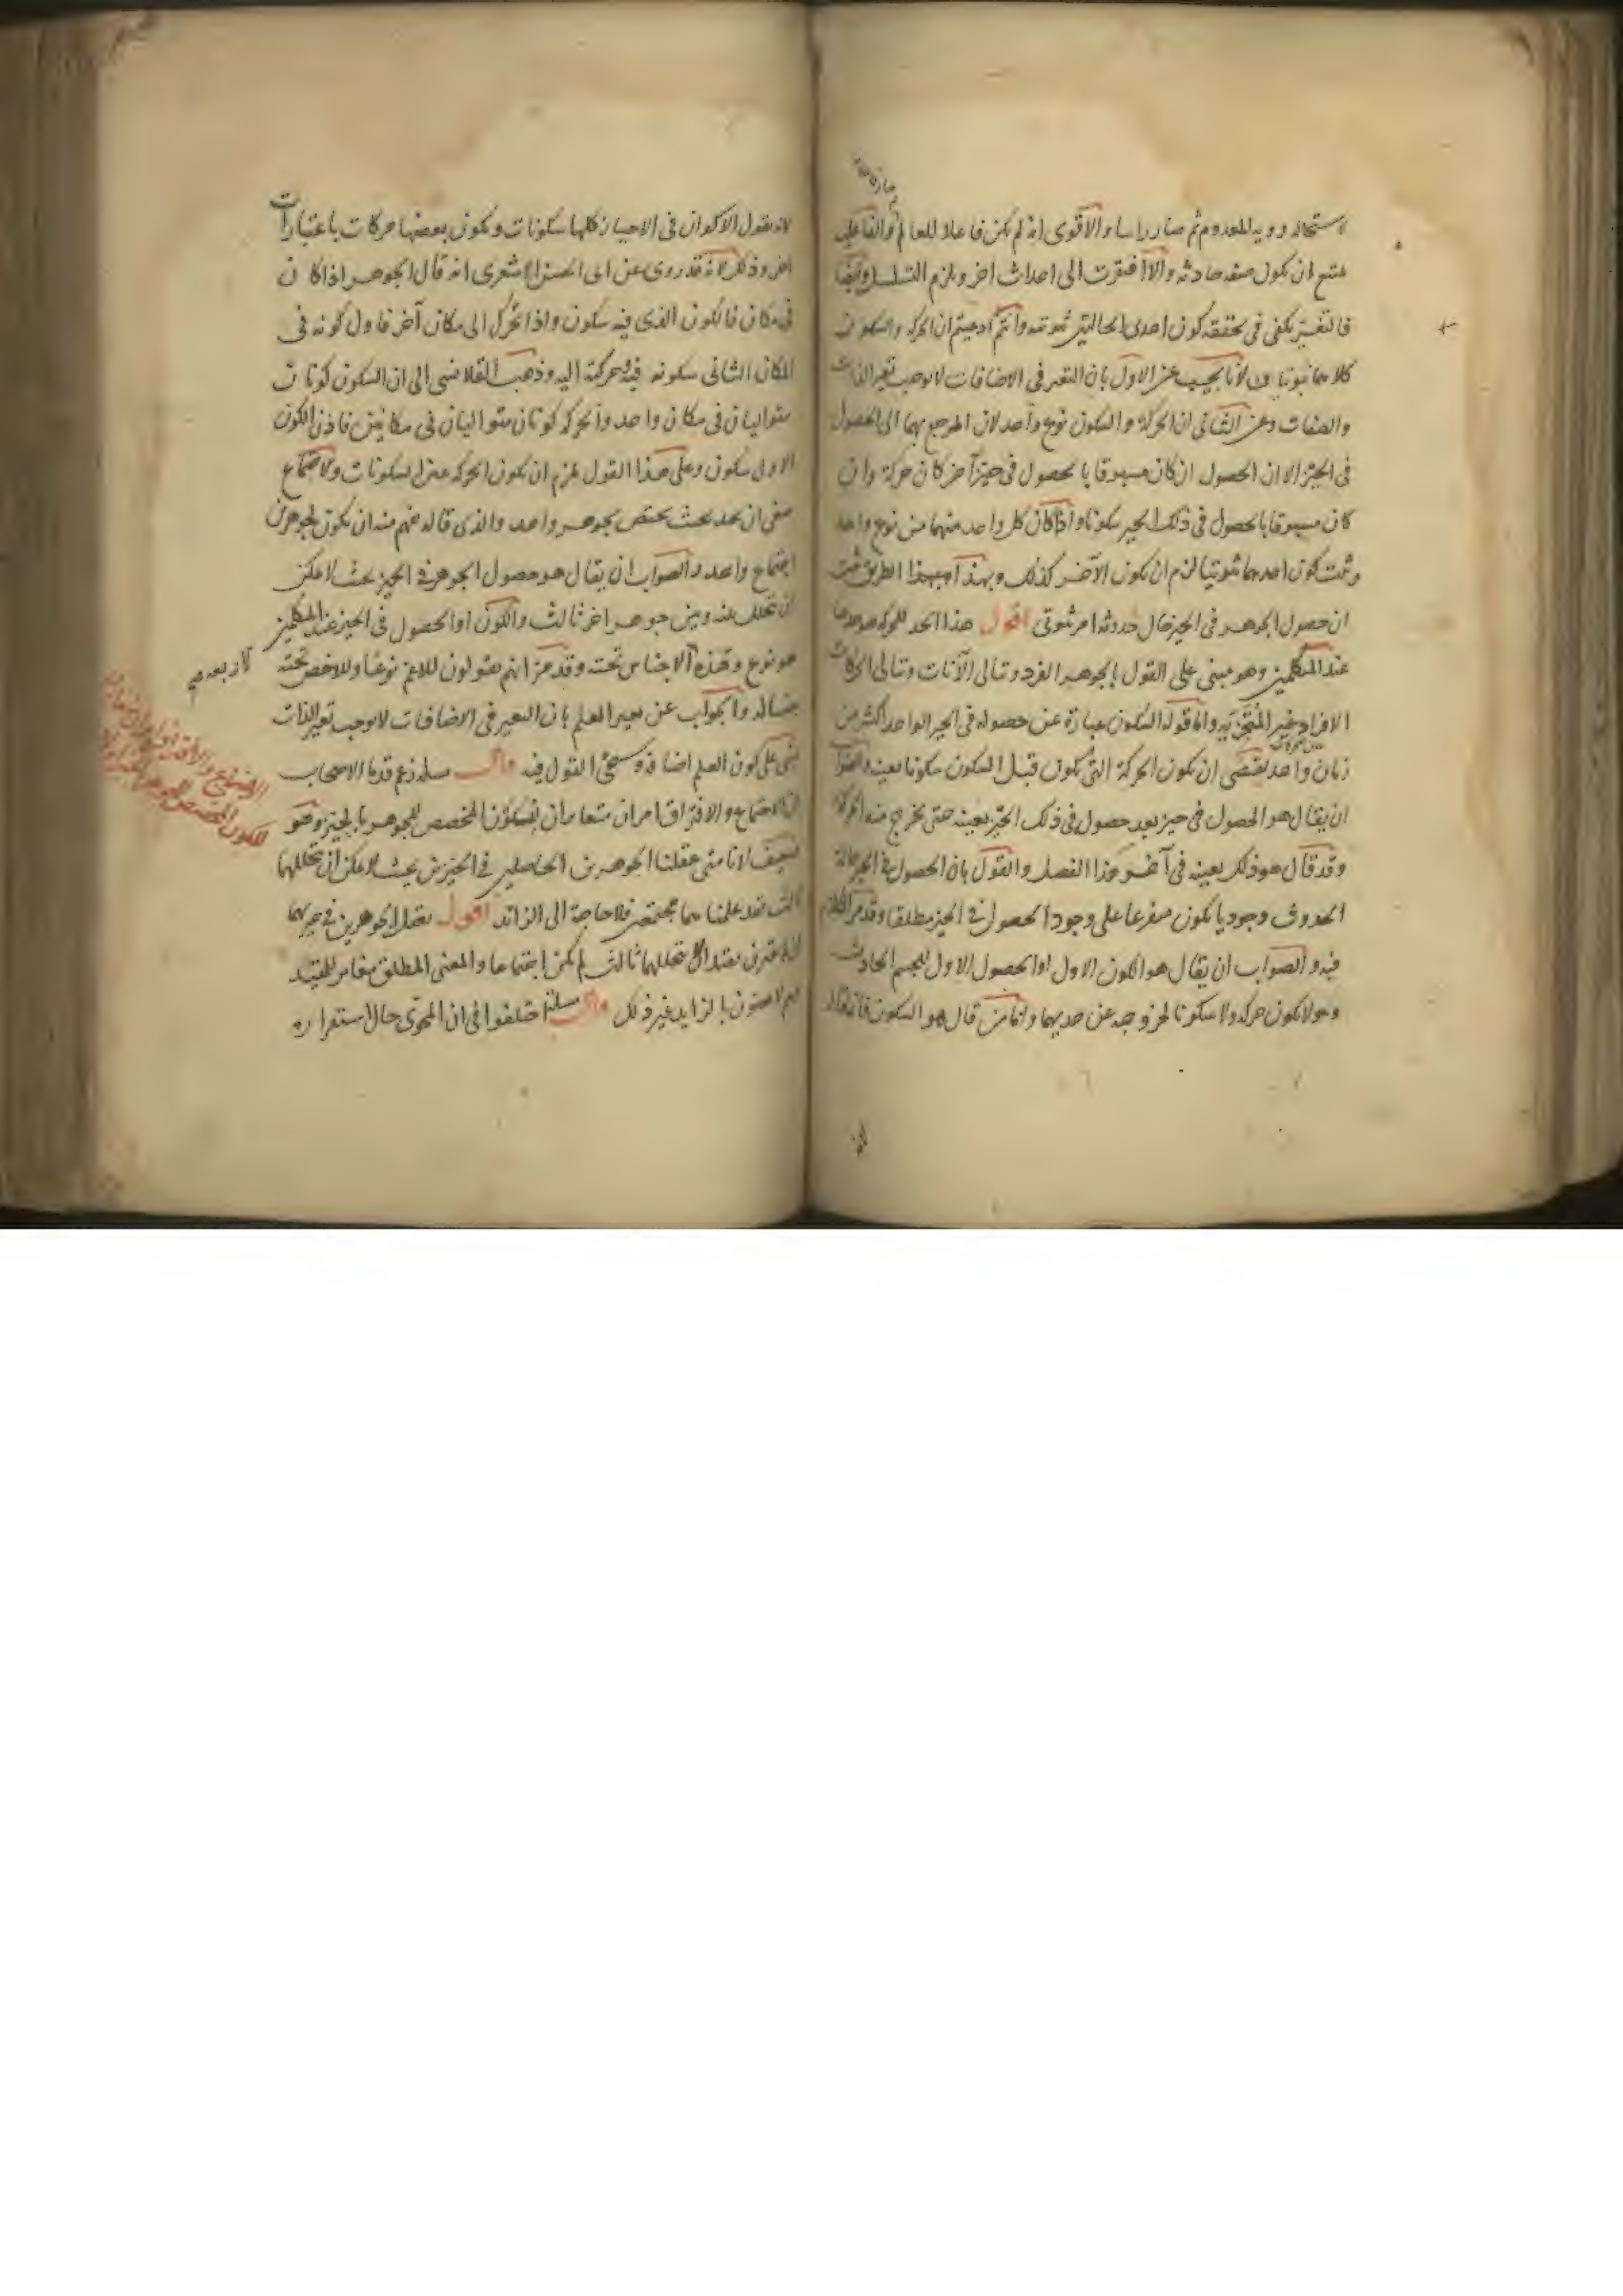 لاستحالة رؤية المعدوم ثم صار رائيا والاقوى انه لم يكن فاعلا للعالم والفاعلية
يمتنع ان يكون صفة حادثة والا افتقرت الى احداث اخر ويلزم التسلسل وايضا
فالتغير يكفي في تحققه كون احدى الحالتين ثبوتية وانتم ادعيتم ان الحركة والسكون
كلاهما ثبوتيان لأنا نجيب عن الاول بان التغير في الاضافات لا يوجب تغير الذات
والصفات وعن الثاني ان الحركة والسكون نوع واحد لان المرجع بهما الى الحصول
في الحيز الا ان الحصول ان كان مسبوقا بالحصول في حيز آخر كان حركة وان
كان مسبوقا بالحصول في ذلك الحيز سكونا واذا كان كل واحد منهما من نوع واحد
وثبت كون احدهما ثبوتيا لزم ان يكون الآخر كذلك وبهذا الطريق ثبت
ان حصول الجوهر في الحيز حال حدوثه امر ثبوتي اقول هذا الحد للحركة
عند المتكلمين وهو مبني على القول بالجوهر الفرد وتتالي الآنات وتتالي الحركات
الافراد غير المتجزئة واما قوله السكون عبارة عن حصوله في الحيز الواحد اكثر من
زمان واحد يقتضي ان يكون الحركة التي تكون قبل السكون سكونا بعينه والصواب
ان يقال هو الحصول في حيز بعد حصول في ذلك الحيز بعينه حتى يخرج منه الحركة
وقد قال هو ذلك بعينه في آخر هذا الفصل والقول بان الحصول في الحيز حالة
الحدوث وجوديا يكون متفرعا على وجود الحصول في الحيز مطلقا وقد مر الكلام
فيه والصواب ان يقال هو الكون الاول او الحصول الاول للجسم الحادث
وهو لا يكون حركة ولا سكونا لخروجه عن حديهما واما من قال هو السكون فانه قال
لانه يقول الاكوان في الاحياز كلها سكونات ويكون بعضها حركات باعتبارات
اخر وذلك لانه قد روى عن ابي الحسن الاشعري انه قال الجوهر اذا كان
في مكان فالكون الذي فيه سكون واذا تحرك الى مكان آخر فاول كونه في
المكان الثاني سكونه فيه وحركته اليه وذهب القلانسي الى ان السكون كونان
متواليان في مكان واحد والحركة كونان متواليان في مكانين فاذن الكون
الاول سكون وعلى هذا القول يلزم ان يكون الحركة عن السكونات والاجتماع
ينبغي ان يحد بحيث يختص بجوهر واحد والذي قاله يفهم منه ان يكون لجوهرين
اجتماع واحد والصواب ان يقال هو حصول الجوهر في الحيز بحيث لا يمكن
ان يتخلل بينه وبين جوهر اخر ثالث والكون او الحصول في الحيز عند المتكلمين
هو نوع وهذه الاجناس تحته وقد مر انهم يقولون للاعم نوعا وللاخص تحته
الاربعة
جنسا له والجواب عن تغير العلم بان التغير في الاضافات لا يوجب تغير الذات
يبنى على كون العلم اضافة وسيجئ القول فيه قال مسئلة زعم قدماء الاصحاب
ان الاجتماع والافتراق امران مغايران للكون المخصص للجوهر بالحيز وهو
ضعيف لانا متى عقلنا الجوهرين الحاصلين في الحيزين بحيث لا يمكن ان يتخللهما
ثالث فقد علمناهما مجتمعين فلا حاجة الى الزائد اقول تعقل الجوهرين في حيزيهما
ثالث لم يكن اجتماعا والمعنى المطلق مغاير للمقيد
بالزايد غير ذلك قال مسئلة اختلفوا في ان الهوى حال استقراره